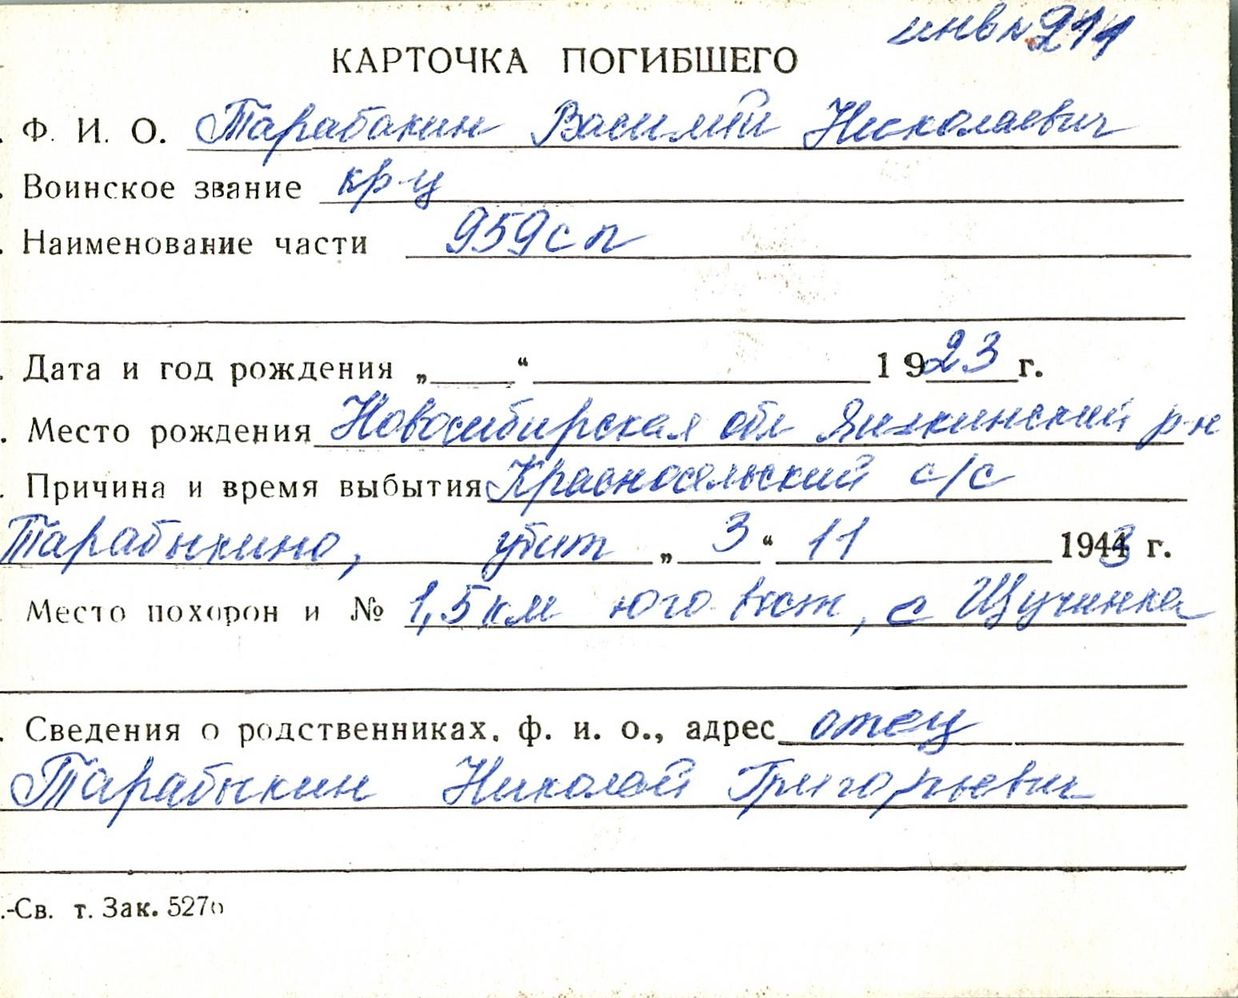 инв №
КАРТОЧКА ПОГИБШЕГО
. Ф. И. О. Тарабакин Василий Николаевич
. Воинское звание кр-ц
. Наименование части 959 сп
. Дата и год рождения „ “ 1923 г.
. Место рождения Новосибирская обл Яшкинский р-н
. Причина и время выбытия Красносельский с/с
Тарабыкино, убит „ 3 “ 11 1943 г.
Место похорон и № 1,5 км юго вост, с Щучинка
. Сведения о родственниках. ф. и. о., адрес отец
Тарабыкин Николай Григорьевич
.-Св. т. Зак. 5270